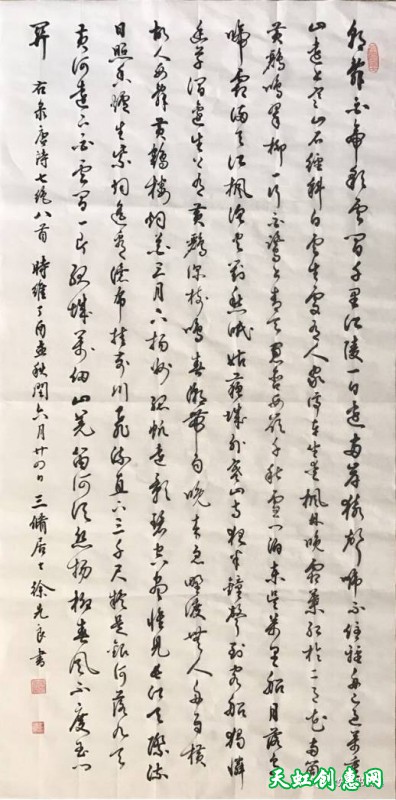 朝辞白帝彩云间千里江陵一日还两岸猿声啼不住轻舟已过万重
山远上寒山石径斜白云生处有人家停车坐爱枫林晚霜叶红于二月花两个
黄鹂鸣翠柳一行白鹭上青天窗含西岭千秋雪门泊东吴万里船月落乌
啼霜满天江枫渔火对愁眠姑苏城外寒山寺夜半钟声到客船独怜
幽草涧边生上有黄鹂深树鸣春潮带雨晚来急野渡无人舟自横
故人西辞黄鹤楼烟花三月下扬州孤帆远影碧空尽唯见长江天际流
日照香炉生紫烟遥看瀑布挂前川飞流直下三千尺疑是银河落九天
黄河远上白云间一片孤城万仞山羌笛何须怨杨柳春风不度玉门
关 右录唐诗七绝八首 时维丁酉孟秋闰六月廿四日 三居士徐先良书
天虹创意网